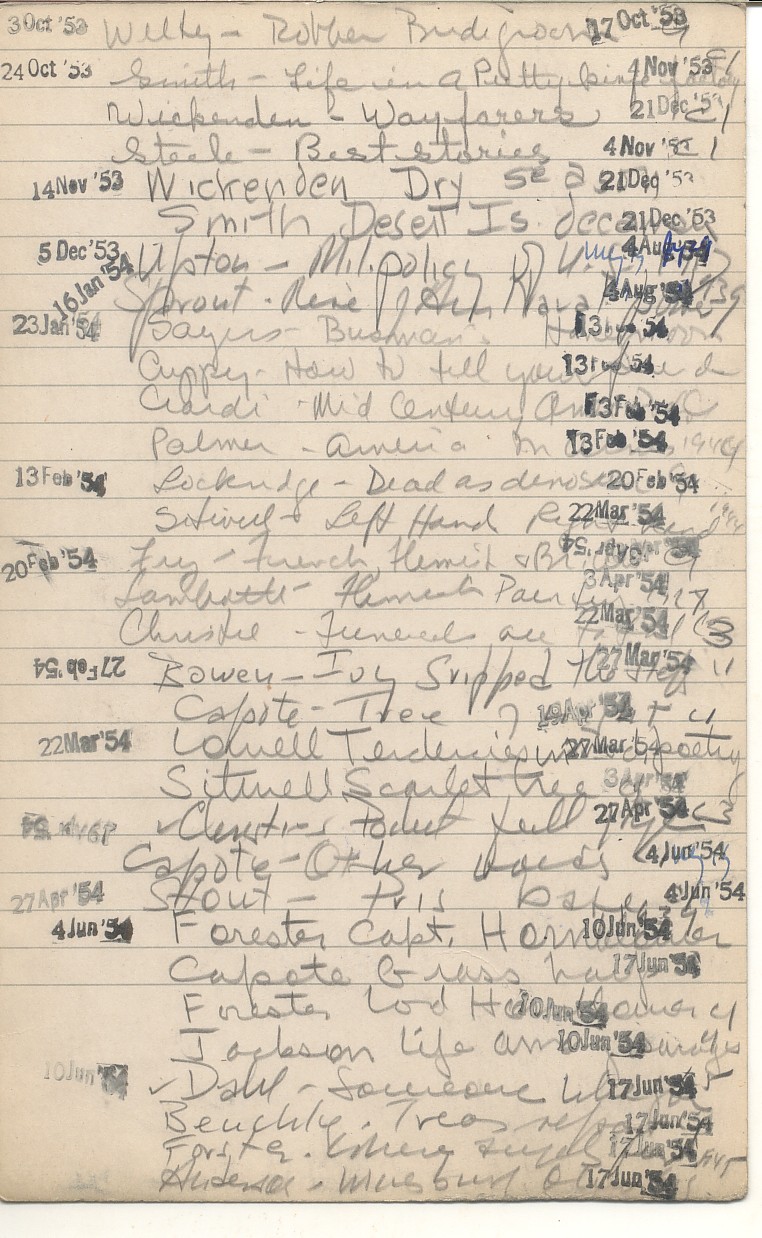 3 Oct '53 Welty - Robber Bridegroom 17 Oct '53
24 Oct '53 Smith - Life in a Putty Knife Factory 4 Nov '53
Wickenden - Wayfarers 21 Dec '53
Steele - Best stories 4 Nov '53
14 Nov '53 Wickenden Dry season 21 Dec '53
Smith Desert Is. decameron 21 Dec '53
5 Dec '53 Upton - Mil. policy of U.S. 4 Aug '54
16 Jan '54 Sprout - Rise of Am Naval Power 4 Aug '54
23 Jan '54 Sayers - Busman's Honeymoon 13 Feb '54
Cuppy - How to tell your friends 13 Feb '54
Ciardi - Mid Century Am 13 Feb '54
Palmer - America in 13 Feb '54
13 Feb '54 Lockridge - Dead as a dinosaur 20 Feb '54
Sitwell - Left Hand Right Hand 22 Mar '54
20 Feb '54 Fry - French, Flemish & Brit 3 Apr '54
Lambotte - Flemish Painting 3 Apr '54
Christie - Funerals are Fatal 22 Mar '54
27 Feb '54 Bowen - Ivy Gripped the Steps 27 Mar '54
Capote - Tree of Night 19 Apr '54
22 Mar '54 Lowell Tendencies in mod poetry 27 Mar '54
Sitwell Scarlet tree 3 Apr '54
✓ Christie - Pocket full of rye 27 Apr '54
Capote - Other voices 4 Jun '54
27 Apr '54 Stout - Pris Base 4 Jun '54
4 Jun '54 Forester Capt. Hornblower 10 Jun '54
Capote Grass harp 17 Jun '54
Forester Lord Hornblower 10 Jun '54
Jackson Life among savages 10 Jun '54
10 Jun '54 ✓ Dahl - Someone like you 17 Jun '54
Benchley. Treas 17 Jun '54
Forster. Where angels fear 17 Jun '54
Anderson - Winesburg Ohio 17 Jun '54